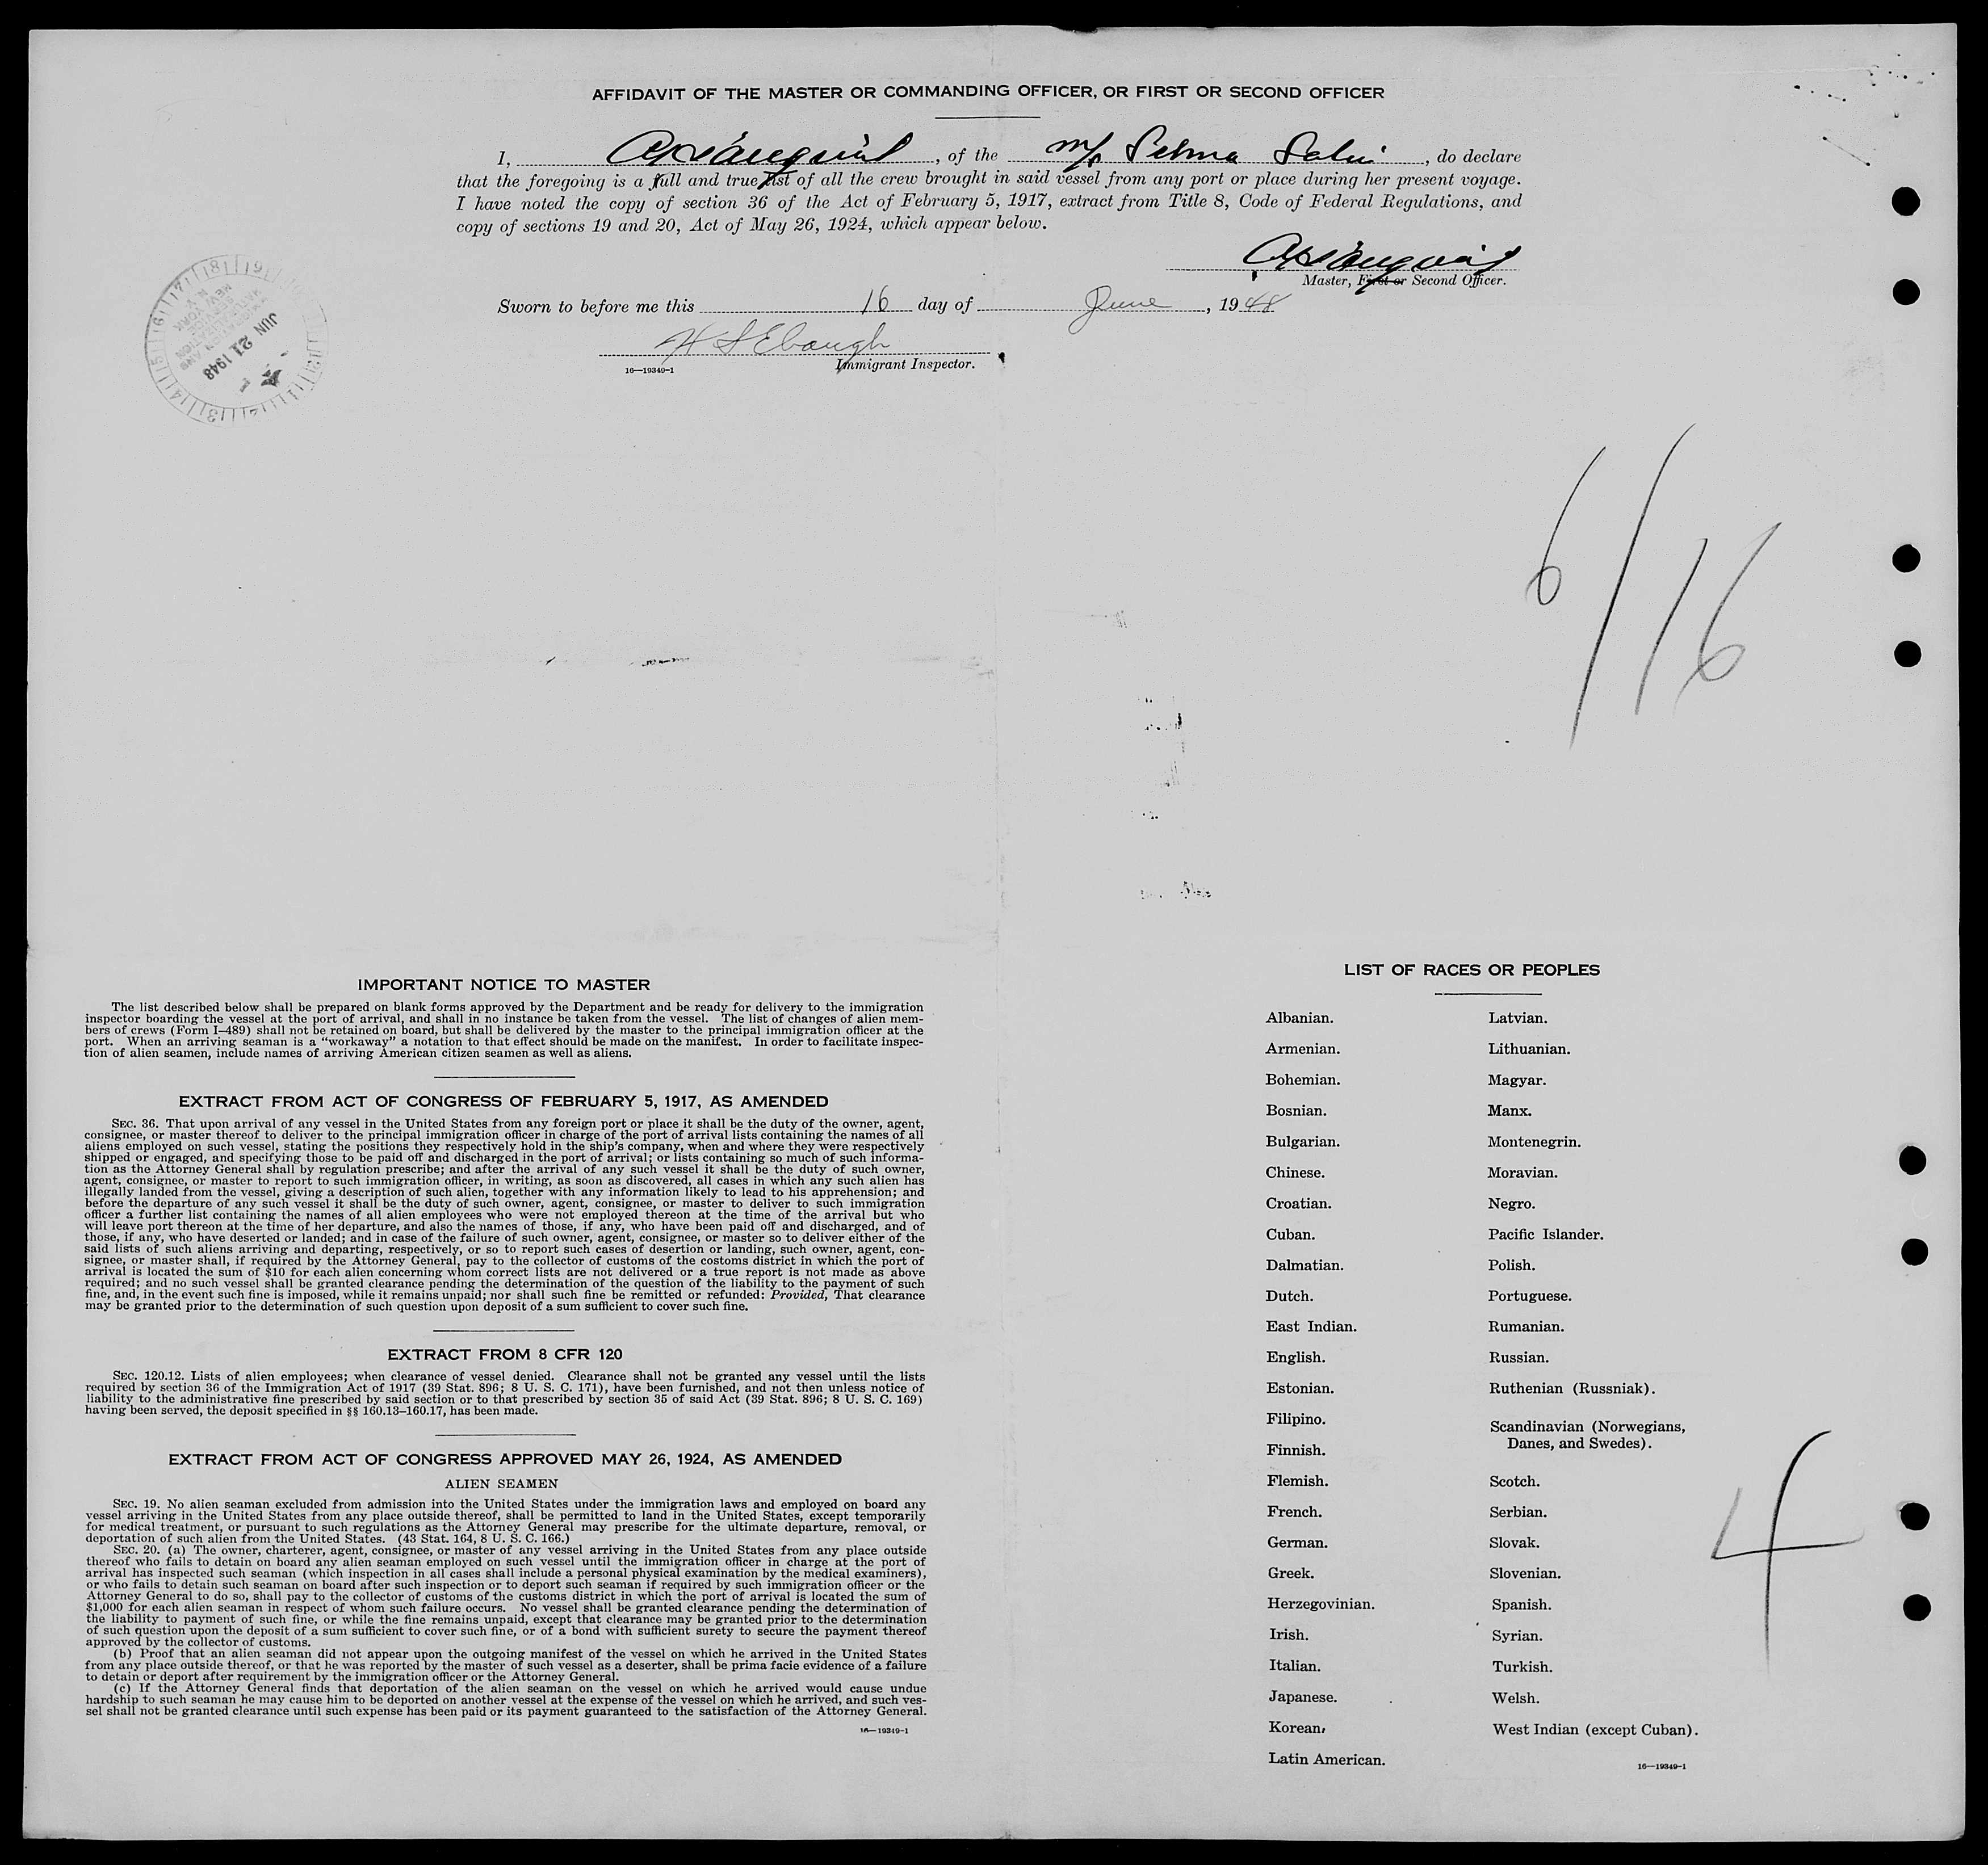 AFFIDAVIT OF THE MASTER OR COMMANDING OFFICER, OR FIRST OR SECOND OFFICER
I, , of the m/s Selma Salén, do declare
that the foregoing is a full and true list of all the crew brought in said vessel from any port or place during her present voyage.
I have noted the copy of section 36 of the Act of February 5, 1917, extract from Title 8, Code of Federal Regulations, and
copy of sections 19 and 20, Act of May 26, 1924, which appear below.
Master, First or Second Officer.
Sworn to before me this 16 day of June, 1948
H S Ebaugh
16—19349-1 Immigrant Inspector.
JUN 21 1948
6/16
IMPORTANT NOTICE TO MASTER
The list described below shall be prepared on blank forms approved by the Department and be ready for delivery to the immigration
inspector boarding the vessel at the port of arrival, and shall in no instance be taken from the vessel. The list of changes of alien mem-
bers of crews (Form I-489) shall not be retained on board, but shall be delivered by the master to the principal immigration officer at the
port. When an arriving seaman is a “workaway” a notation to that effect should be made on the manifest. In order to facilitate inspec-
tion of alien seamen, include names of arriving American citizen seamen as well as aliens.
EXTRACT FROM ACT OF CONGRESS OF FEBRUARY 5, 1917, AS AMENDED
SEC. 36. That upon arrival of any vessel in the United States from any foreign port or place it shall be the duty of the owner, agent,
consignee, or master thereof to deliver to the principal immigration officer in charge of the port of arrival lists containing the names of all
aliens employed on such vessel, stating the positions they respectively hold in the ship's company, when and where they were respectively
shipped or engaged, and specifying those to be paid off and discharged in the port of arrival; or lists containing so much of such informa-
tion as the Attorney General shall by regulation prescribe; and after the arrival of any such vessel it shall be the duty of such owner,
agent, consignee, or master to report to such immigration officer, in writing, as soon as discovered, all cases in which any such alien has
illegally landed from the vessel, giving a description of such alien, together with any information likely to lead to his apprehension; and
before the departure of any such vessel it shall be the duty of such owner, agent, consignee, or master to deliver to such immigration
officer a further list containing the names of all alien employees who were not employed thereon at the time of the arrival but who
will leave port thereon at the time of her departure, and also the names of those, if any, who have been paid off and discharged, and of
those, if any, who have deserted or landed; and in case of the failure of such owner, agent, consignee, or master so to deliver either of the
said lists of such aliens arriving and departing, respectively, or so to report such cases of desertion or landing, such owner, agent, con-
signee, or master shall, if required by the Attorney General, pay to the collector of customs of the costoms district in which the port of
arrival is located the sum of $10 for each alien concerning whom correct lists are not delivered or a true report is not made as above
required; and no such vessel shall be granted clearance pending the determination of the question of the liability to the payment of such
fine, and, in the event such fine is imposed, while it remains unpaid; nor shall such fine be remitted or refunded: Provided, That clearance
may be granted prior to the determination of such question upon deposit of a sum sufficient to cover such fine.
EXTRACT FROM 8 CFR 120
SEC. 120.12. Lists of alien employees; when clearance of vessel denied. Clearance shall not be granted any vessel until the lists
required by section 36 of the Immigration Act of 1917 (39 Stat. 896; 8 U. S. C. 171), have been furnished, and not then unless notice of
liability to the administrative fine prescribed by said section or to that prescribed by section 35 of said Act (39 Stat. 896; 8 U. S. C. 169)
having been served, the deposit specified in §§ 160.13–160.17, has been made.
EXTRACT FROM ACT OF CONGRESS APPROVED MAY 26, 1924, AS AMENDED
ALIEN SEAMEN
SEC. 19. No alien seaman excluded from admission into the United States under the immigration laws and employed on board any
vessel arriving in the United States from any place outside thereof, shall be permitted to land in the United States, except temporarily
for medical treatment, or pursuant to such regulations as the Attorney General may prescribe for the ultimate departure, removal, or
deportation of such alien from the United States. (43 Stat. 164, 8 U. S. C. 166.)
SEC. 20. (a) The owner, charterer, agent, consignee, or master of any vessel arriving in the United States from any place outside
thereof who fails to detain on board any alien seaman employed on such vessel until the immigration officer in charge at the port of
arrival has inspected such seaman (which inspection in all cases shall include a personal physical examination by the medical examiners),
or who fails to detain such seaman on board after such inspection or to deport such seaman if required by such immigration officer or the
Attorney General to do so, shall pay to the collector of customs of the customs district in which the port of arrival is located the sum of
$1,000 for each alien seaman in respect of whom such failure occurs. No vessel shall be granted clearance pending the determination of
the liability to payment of such fine, or while the fine remains unpaid, except that clearance may be granted prior to the determination
of such question upon the deposit of a sum sufficient to cover such fine, or of a bond with sufficient surety to secure the payment thereof
approved by the collector of customs.
(b) Proof that an alien seaman did not appear upon the outgoing manifest of the vessel on which he arrived in the United States
from any place outside thereof, or that he was reported by the master of such vessel as a deserter, shall be prima facie evidence of a failure
to detain or deport after requirement by the immigration officer or the Attorney General.
(c) If the Attorney General finds that deportation of the alien seaman on the vessel on which he arrived would cause undue
hardship to such seaman he may cause him to be deported on another vessel at the expense of the vessel on which he arrived, and such ves-
sel shall not be granted clearance until such expense has been paid or its payment guaranteed to the satisfaction of the Attorney General.
16—19349-1
LIST OF RACES OR PEOPLES
Albanian. Latvian.
Armenian. Lithuanian.
Bohemian. Magyar.
Bosnian. Manx.
Bulgarian. Montenegrin.
Chinese. Moravian.
Croatian. Negro.
Cuban. Pacific Islander.
Dalmatian. Polish.
Dutch. Portuguese.
East Indian. Rumanian.
English. Russian.
Estonian. Ruthenian (Russniak).
Filipino. Scandinavian (Norwegians,
Finnish. Danes, and Swedes).
Flemish. Scotch.
French. Serbian.
German. Slovak.
Greek. Slovenian.
Herzegovinian. Spanish.
Irish. Syrian.
Italian. Turkish.
Japanese. Welsh.
Korean. West Indian (except Cuban).
Latin American.
16—19349-1
4